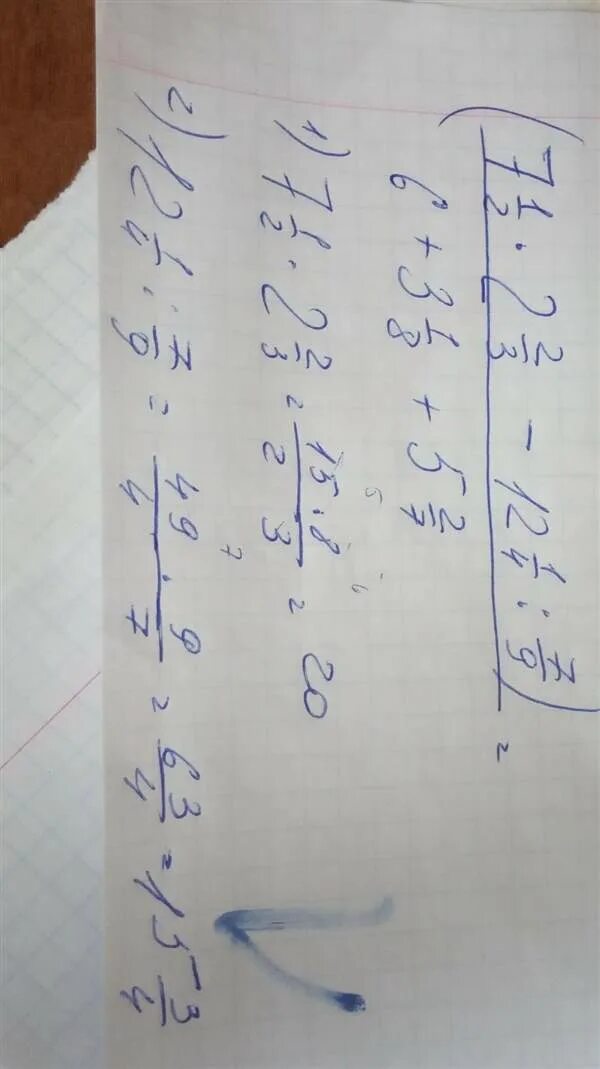 (7 1/2 · 2 2/3 − 12 1/4 : 7/9) =
6 + 3 1/8 + 5 2/7
1) 7 1/2 · 2 2/3 = 15·8/2 3 = 20
2) 12 1/4 : 7/9 = 49·9/4 7 = 63/4 = 15 3/4